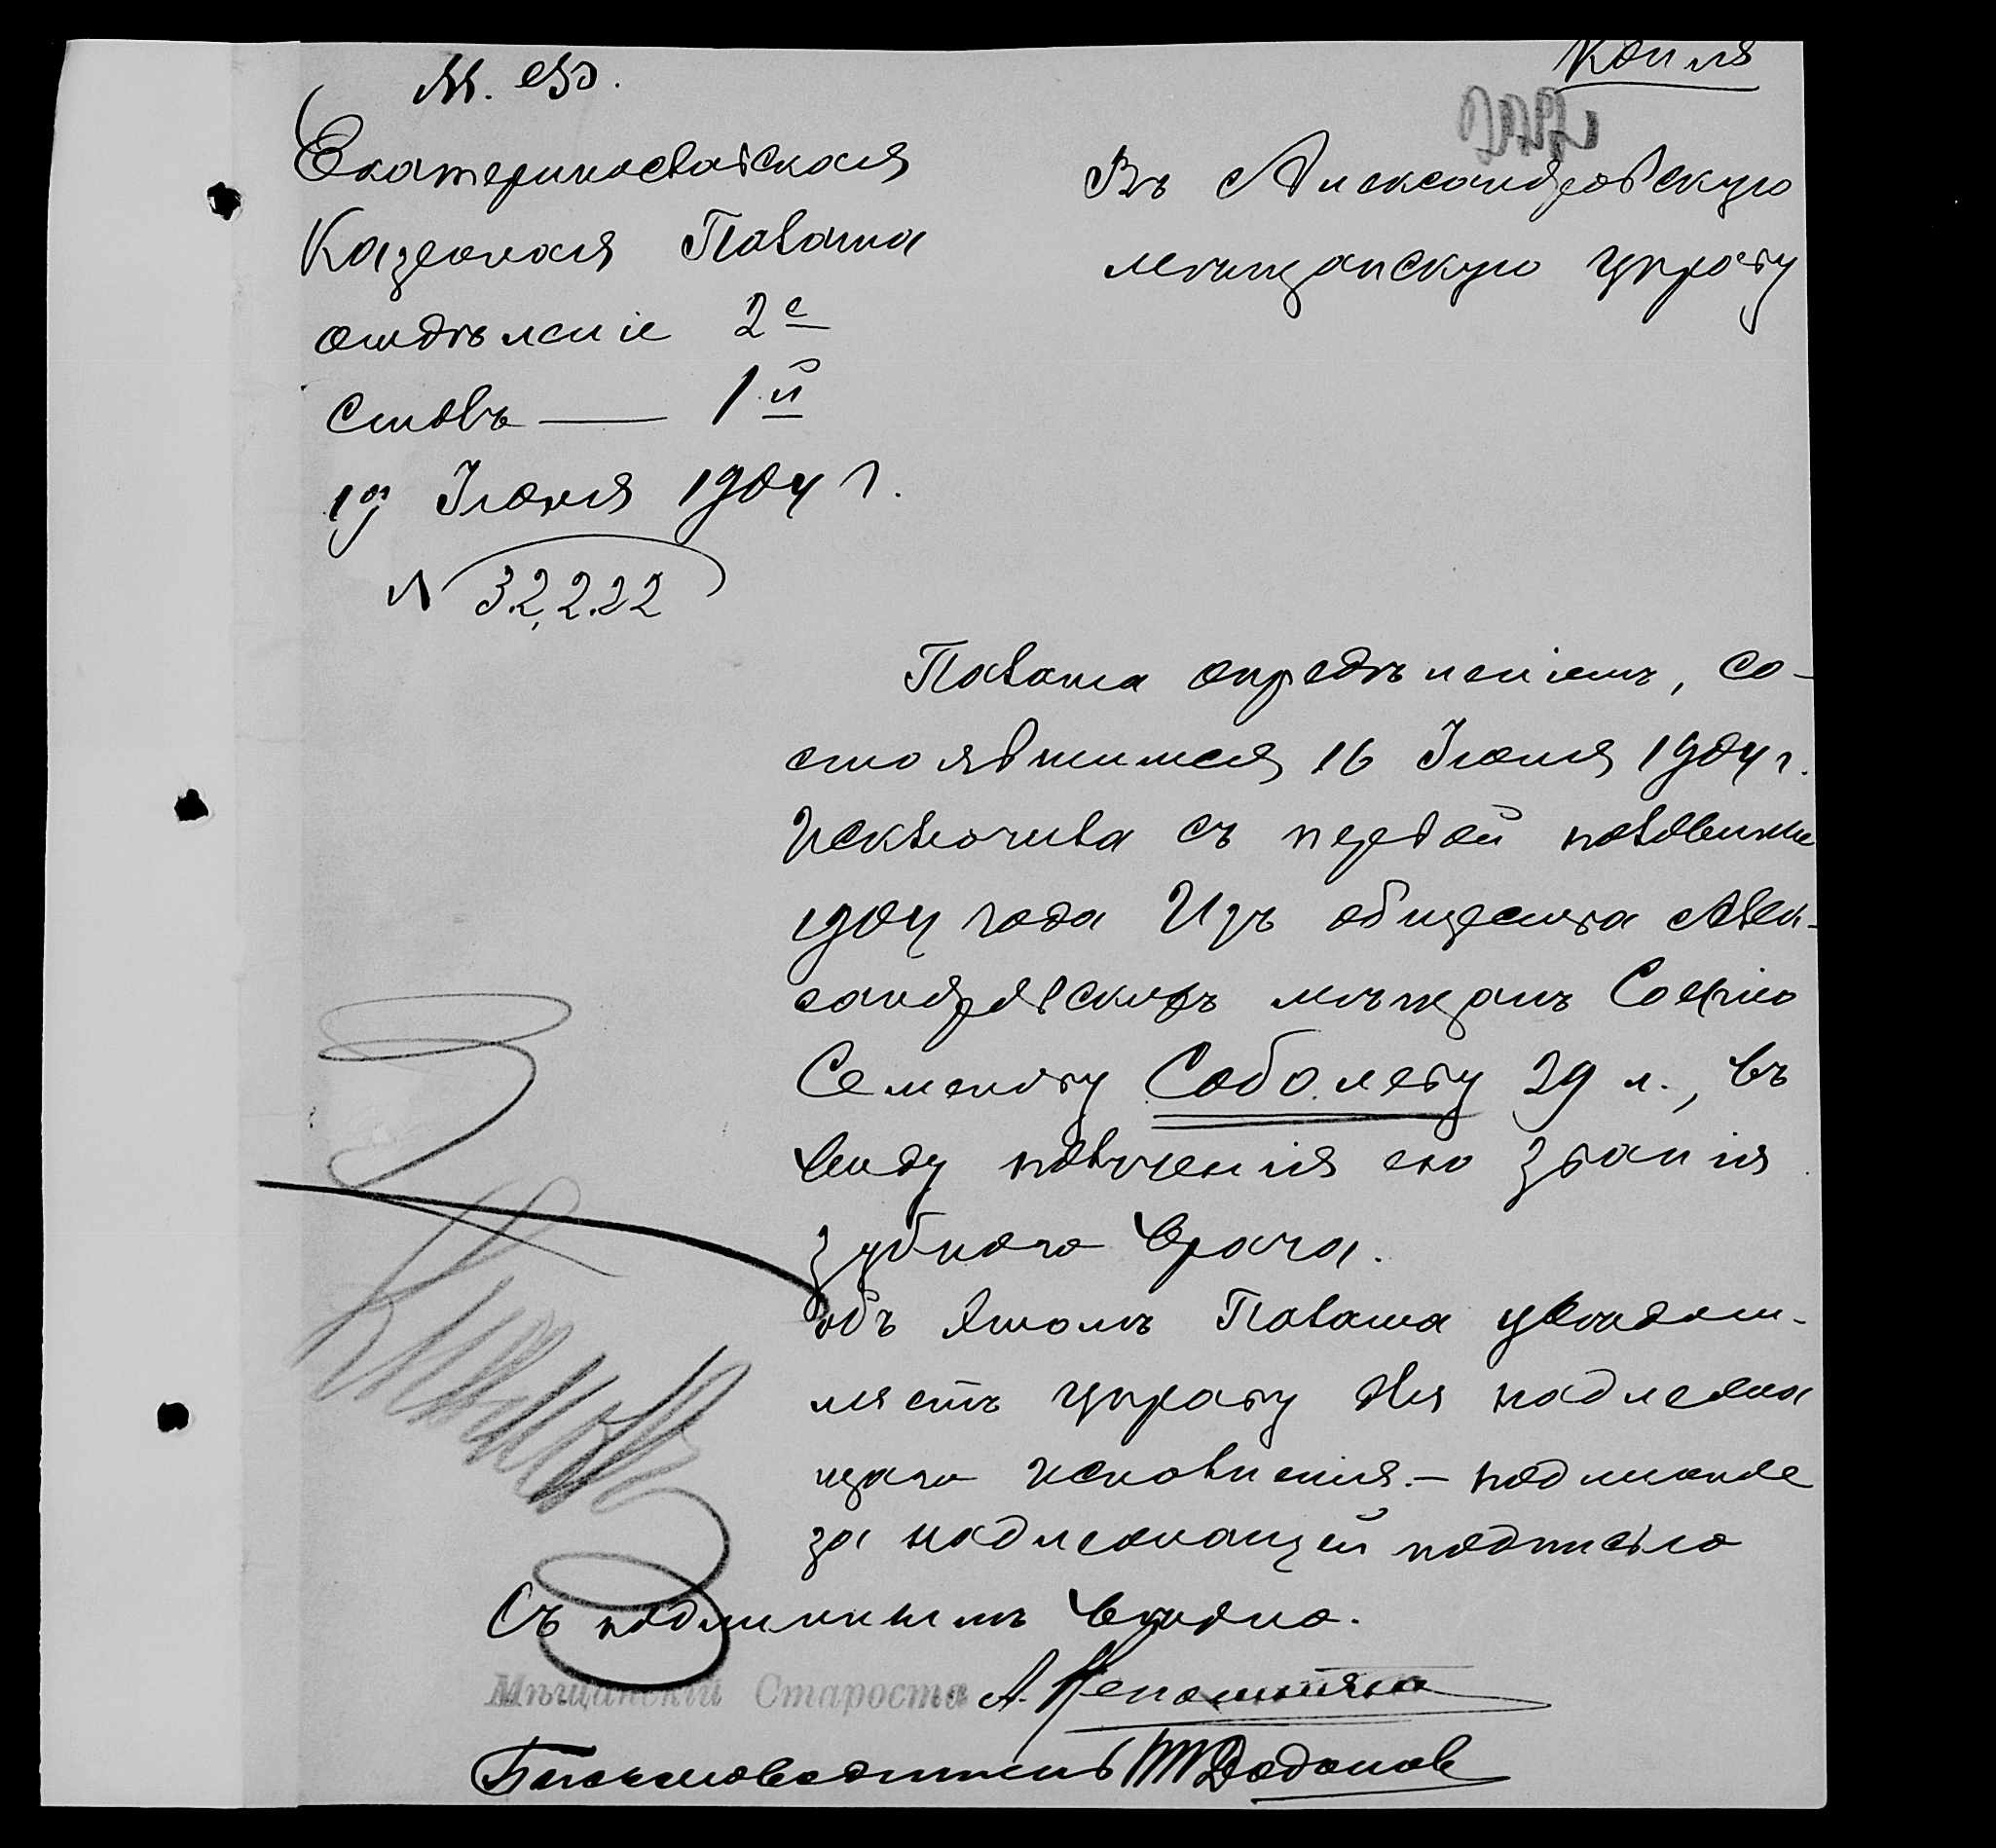 Копія
М. Ф.
Екатеринославская
Казенная Палата
отдѣленіе 2е
Столъ — 1й
19 Іюня 1904 г.
№ 32222
Въ Александровскую
мѣщанскую управу
Палата опредѣленіемъ, со-
стоявшимся 16 Іюня 1904 г.
Исключила съ первой половины
1904 года Изъ общества Алек-
сандровскихъ мѣщанъ Софію
Семенову Соболеву 29 л., въ
виду полученія ею званія
зубного врача.
объ этомъ Палата увѣдом-
ляетъ управу для надлежа
щаго исполненія. — подлинное
за надлежащей подписью
Съ подлиннымъ вѣрно.
Мѣщанскій Староста А.
Письмоводитель Додоновъ